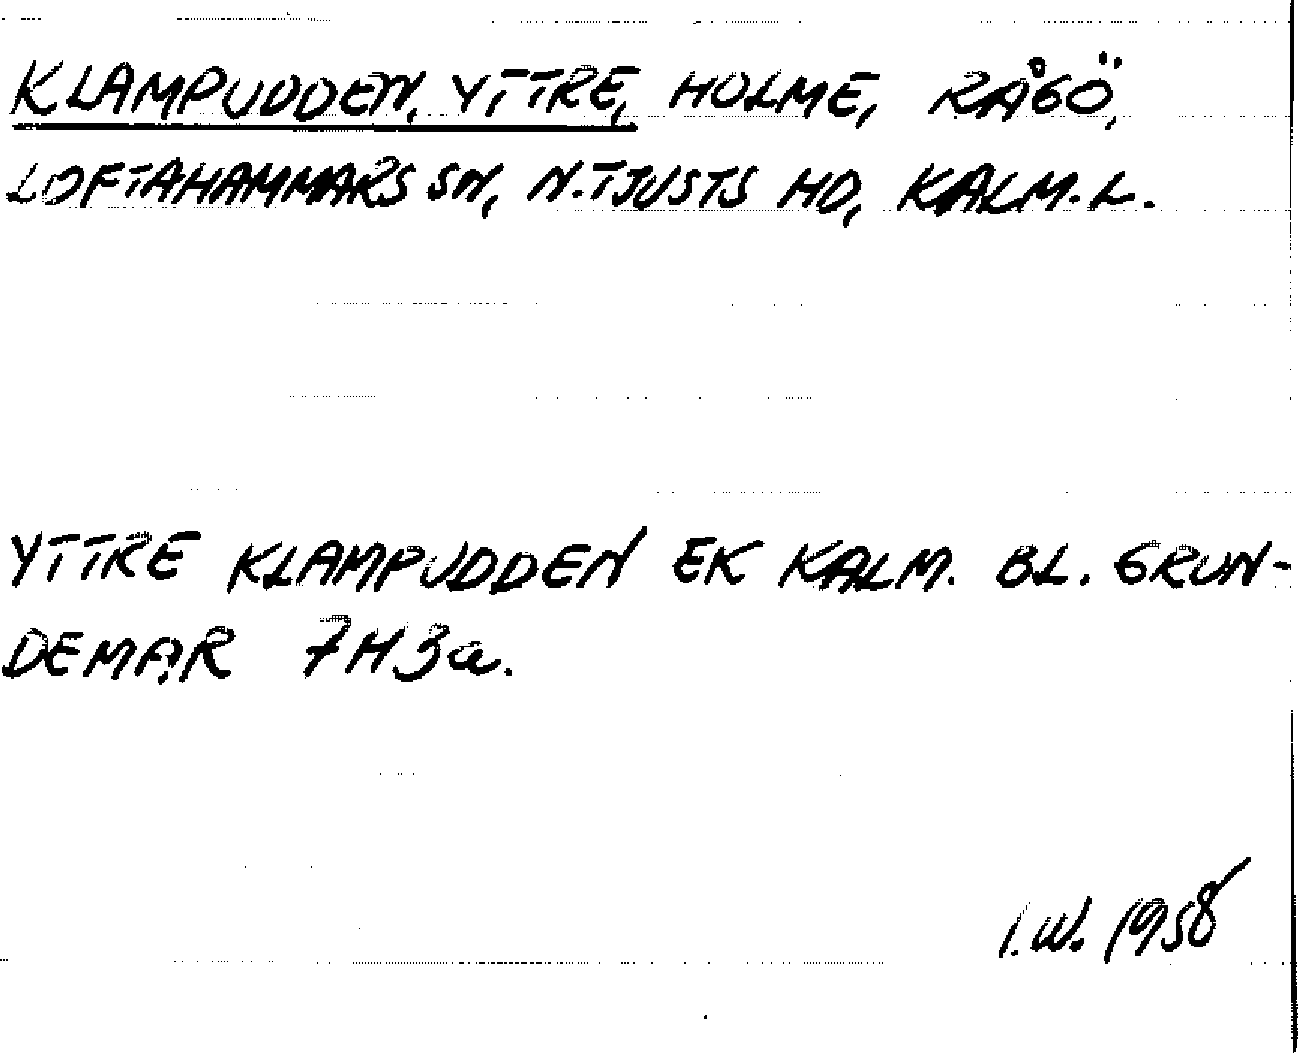 KLAMPUDDEN, YTTRE, HOLME, RÅGÖ,
LOFTAHAMMARS SN, N. TJUSTS HD, KALM. L.
YTTRE KLAMPUDDEN EK KALM. BL. GRUN-
DEMAR 7H3a.
I.W. 1958